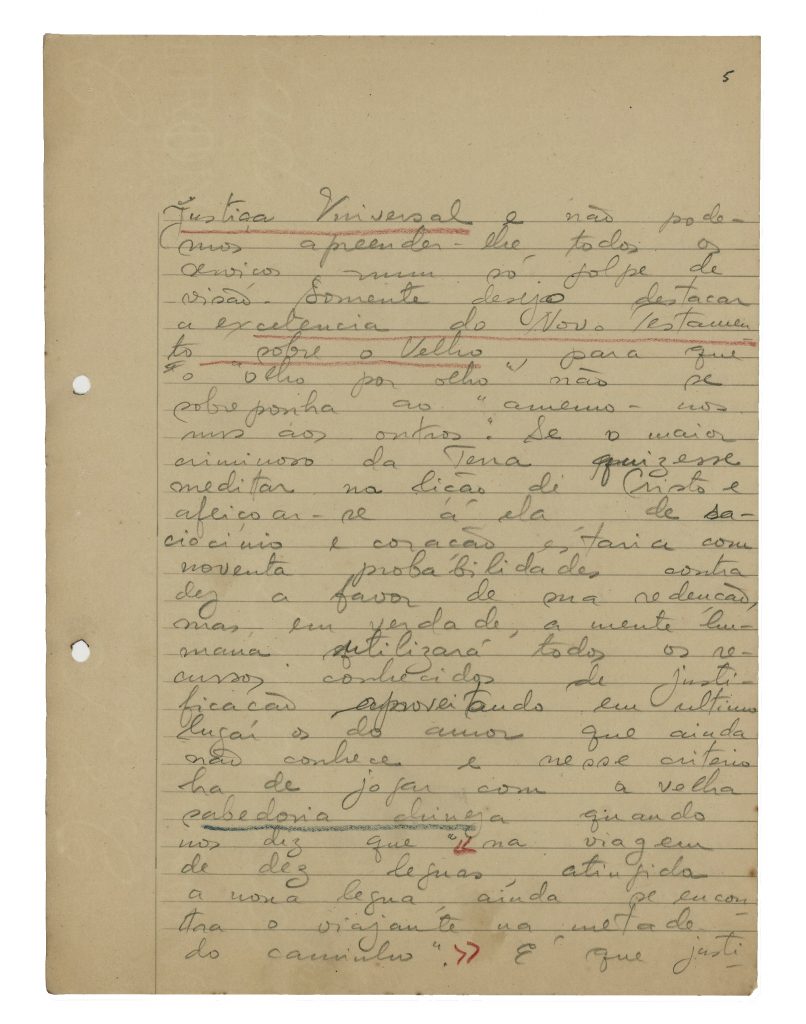 5
Justiça Universal e não pode-
mos apreender-lhe todos os
serviços num só golpe de
visão. Somente desejo destacar
a excelencia do Novo Testamen-
to sobre o Velho, para que
o "olho por olho" não se
sobreponha ao "amemo-nos
uns aos outros". Se o maior
criminoso da Terra quizesse
meditar na lição de Cristo e
afeiçoar-se á ela de
ciocinio e coração estaria com
noventa probabilidades contra
dez a favor de sua redenção,
mas, em verdade, a mente hu-
mana utilizará todos os re-
cursos conhecidos de justi-
ficação aproveitando em ultimo
lugar os do amor que ainda
não conhece e nesse criterio
ha de jogar com a velha
sabedoria chineza quando
nos diz que "« na viagem
de dez leguas, atingida
a nona legua ainda se encon-
tra o viajante na metade
do caminho". » E' que justi-